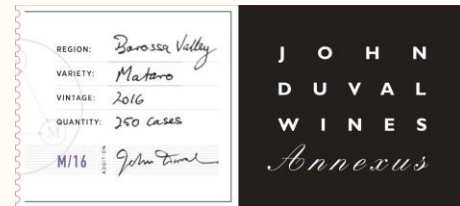 REGION: Barossa Valley
VARIETY: Mataro
VINTAGE: 2016
QUANTITY: 250 cases
M
M/16 ADDITION John Duval
JOHN
DUVAL
WINES
Annexus